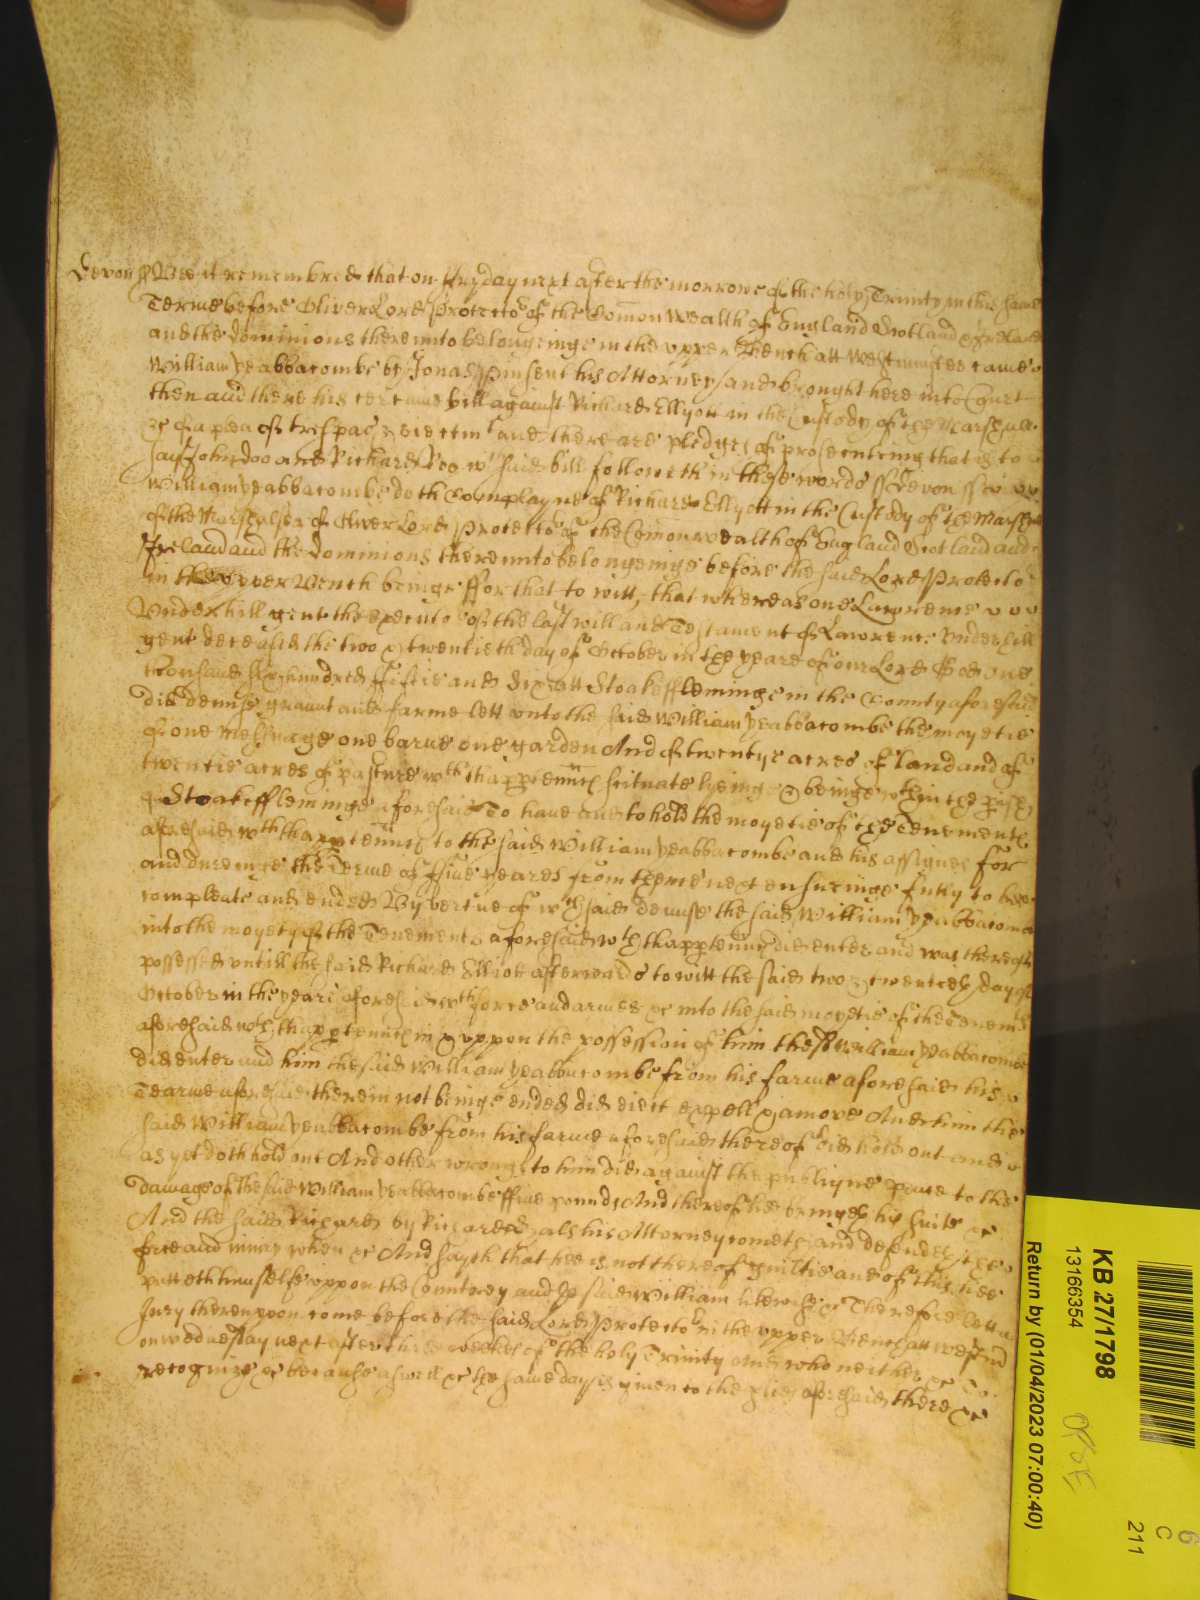 Devon ss Bee it remembred that on Fryday next after the morrowe of the holy Trinity in this same
Terme before Oliver Lord Protecto^r of the Com̄on Wealth of England Scotland & Ireland
and the dominions thereunto belongeinge in the upper Bench att Westminster came
William Yeabbacombe by Jonas Pinsent his Attorney and brought here into Court
then and there his certaine bill against Richard Ellyott in the Custody of the Marshall
&c of a plea of trespas & eiectm^t and there are pledges of prosecuteing that is to
say John Doo and Richard Roo w^ch said bill followeth in these words ss Devon ss
William Yeabbacombe doth Complayne of Richard Ellyott in the Custody of the Marshall
of the Marshalsea of Oliver Lord Protecto^r of the Com̄onwealth of England Scotland and
Ireland and the dominions thereunto belongeinge before the said Lord Protecto^r
in the Upper Bench beinge ffor that to witt, that whereas one Lawrence
Underhill gent the executo^r of the last will and Testament of Lawrence Underhill
gent deceased the two & twentieth day of October in the yeare of our Lord God one
thousand six hundred fiftie and six att Stoakeffleminge in the County aforesaid
did demise graunt and farme lett unto the said William Yeabbacombe the moyetie
of one Messuage one barne one garden And of twentye acres of land and of
twentie acres of pasture w^th thapp^rtenn̄c^s scituate lyeinge & beinge w^thin the p^rish
of Stoakeffleminge aforesaid To have and to hold the moyetie of the Tenements
aforesaid w^th thapp^rtenn̄c^s to the said William Yeabbacombe and his assignes for
and dureinge the Terme of ffive yeares from thence next ensueinge fully to bee
compleate and ended By vertue of w^ch said demise the said William Yeabbacombe
into the moyety of the Tenements aforesaid w^th thapp^rtenn̄c^s did enter and was thereof
possessed untill the said Richard Elliott afterwards to witt the said two & twentieth day of
October in the yeare aforesaid w^th force and armes &c into the said moyetie of the Tenem^ts
aforesaid w^th thapp^rtenn̄c^s in & uppon the possession of him the s^d William Yeabbacombe
did enter and him the said William Yeabbacombe from his farme aforesaid his
Tearme aforesaid therein not beinge ended did eiect expell & amove And him the
said William Yeabbacombe from his farme aforesaid thereof did hold out and
as yet doth hold out And other wrongs to him did against the publique peace to the
damage of the said William Yeabbacombe ffive pounds And thereof he bringeth his suite &c
And the said Richard by Richard his Attorney cometh and defendeth the
force and iniury when &c And sayth that hee is not thereof guiltie and of this hee
putteth himselfe uppon the Countrey and the said William likewise &c Therefore lett a
Jury thereuppon come before the said Lord Protecto^r in the upper Bench att Westm̄
on Wednesday next after three weekes of the holy Trinity And who neither &c To
recognize &c because aswell &c the same day is given to the p^rties aforesaid there &c
KB 27/1798
13166354
Return by (01/04/2023 07:00:40)
6
C
211